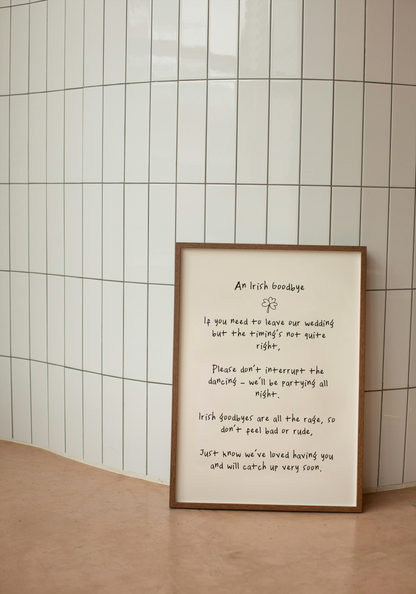 An Irish Goodbye
If you need to leave our wedding
but the timing's not quite
right,
Please don't interrupt the
dancing - we'll be partying all
night.
Irish goodbyes are all the rage, so
don't feel bad or rude,
Just know we've loved having you
and will catch up very soon.